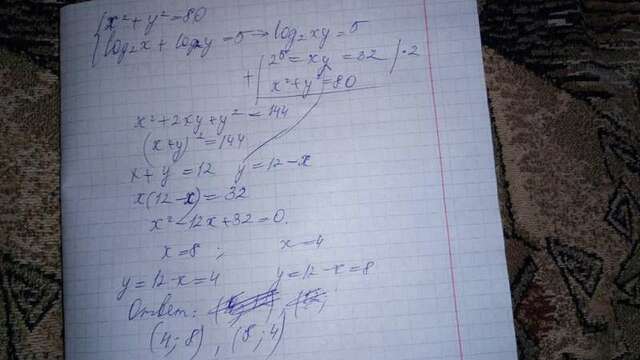 x² + y² = 80
log₂x + log₂y = 5 → log₂xy = 5
2⁵ = xy = 32 | · 2
+ x² + y² = 80
x² + 2xy + y² = 144
(x + y)² = 144
x + y = 12 y = 12 - x
x(12 - x) = 32
x² - 12x + 32 = 0.
x = 8 ; x = 4
y = 12 - x = 4 y = 12 - x = 8
Ответ:
(4; 8), (8; 4)